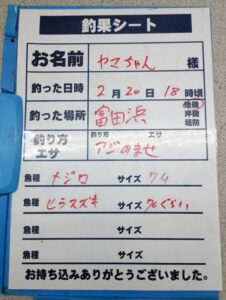 釣果シート
お名前 ヤマちゃん 様
釣った日時 2月20日18時頃
釣った場所 富田浜 地磯 沖磯 堤防
釣り方 エサ 釣り方 エサ
アジのませ
魚種 メジロ サイズ 74
魚種 ヒラスズキ サイズ 70ぐらい
魚種 サイズ
魚種 サイズ
お持ち込みありがとうございました。